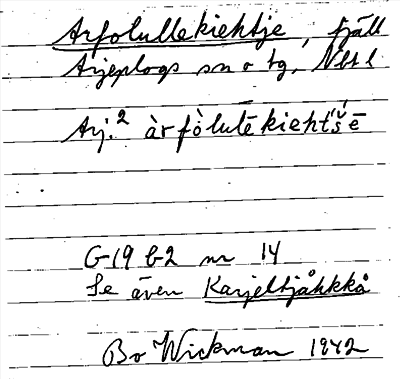 Arfolullekiehtje, fjäll
Arjeplogs sn o tg, Nbt l
Arj.² àrfo̊lulēkiehťšē
G19 b2 nr 14
Se även Karjeltjåhkkå
Bo Wickman 1942